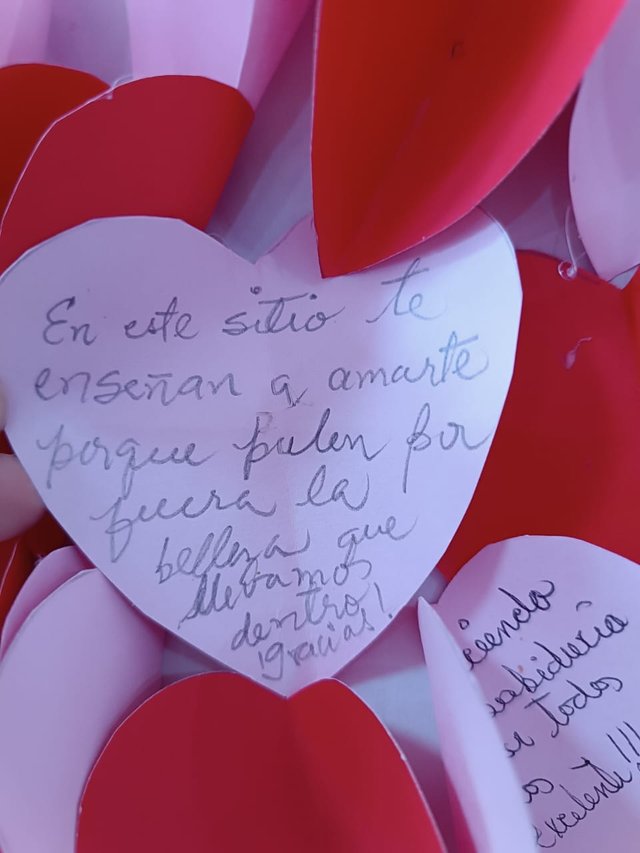 En este sitio te
enseñan a amarte
porque pulen por
fuera la
belleza que
llevamos
dentro!
¡gracias!
todos
excelente!!!